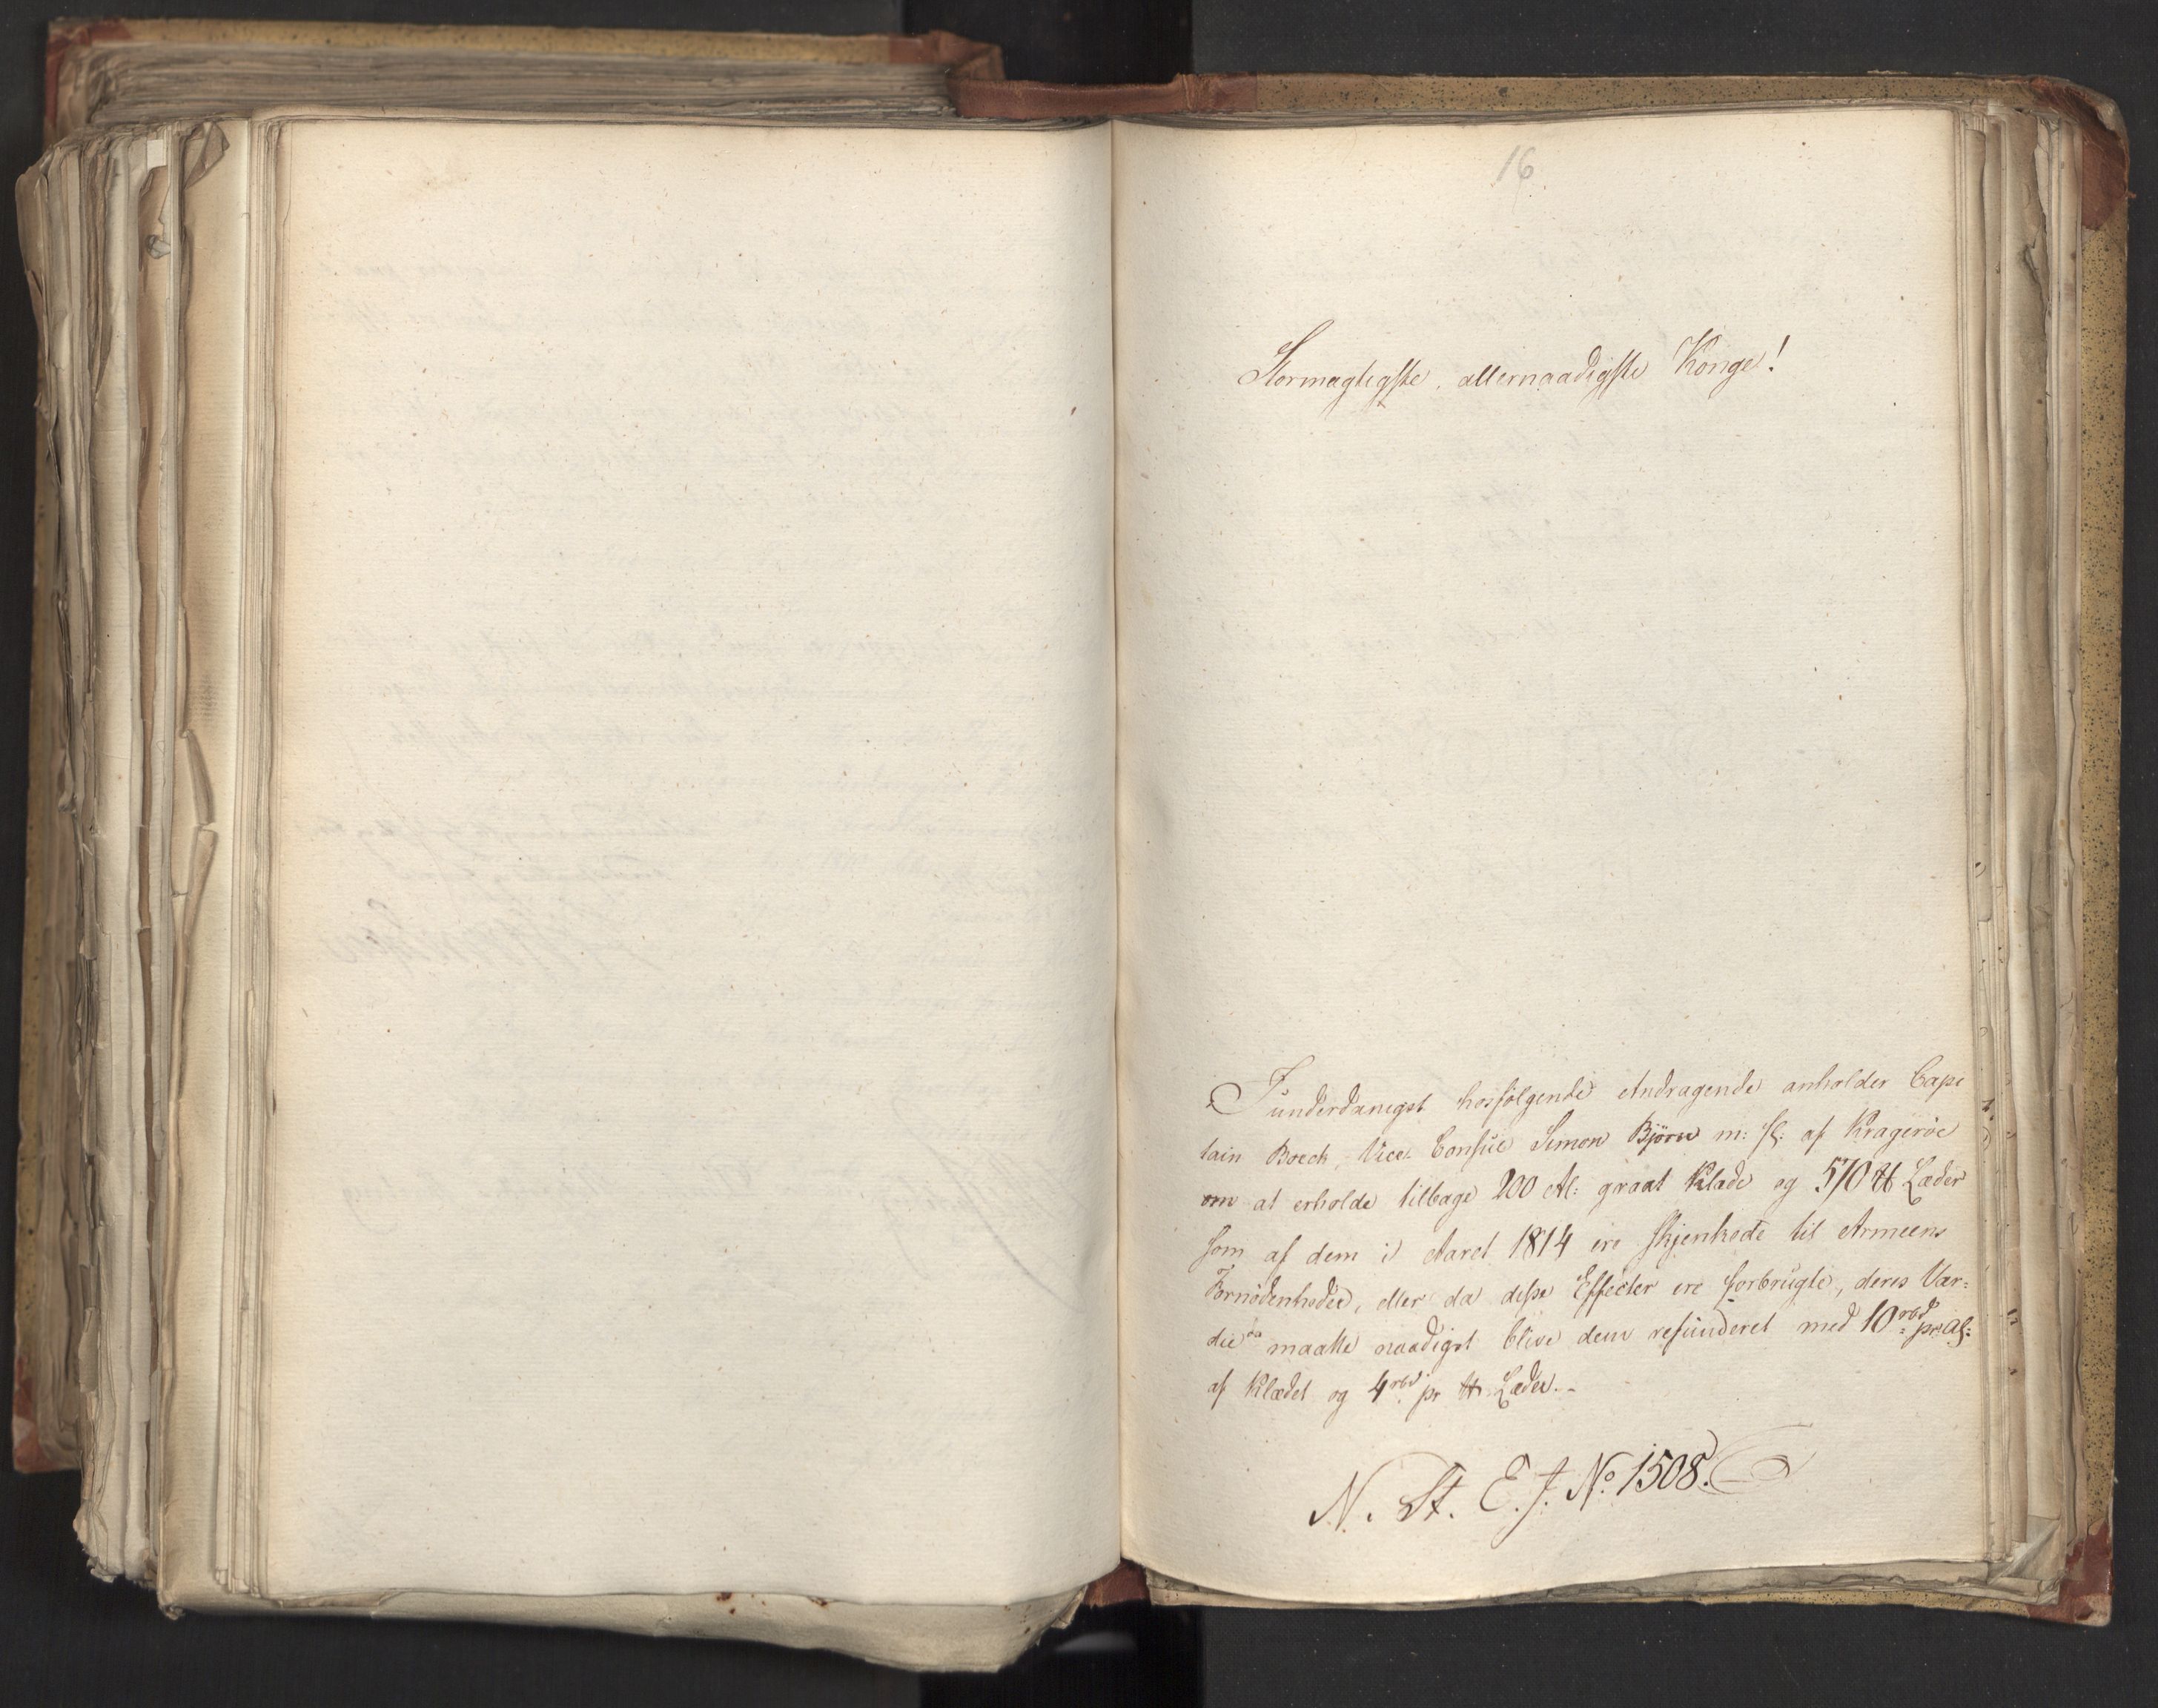 16
Stormægtigste, allernaadigste Konge!
I underdanigst hosfølgende Andragende anholder Cape
tain Boeck, Vice Consul Simon Bjørn m: fl: af Kragerøe
om at erholde tilbage 200 Al: graat Klæde og 570 ℔ Læder
som af dem i Aaret 1814 ere skjenkede til Armeens
Fornødenheder, eller da disse Effecter ere forbrugte, deres Vær=
die da maatte naadigst blive dem refunderet med 10 rbd pr Al:
af Klædet og 4 rbd pr ℔ Læder.-
N. St. E. J. No 1508.